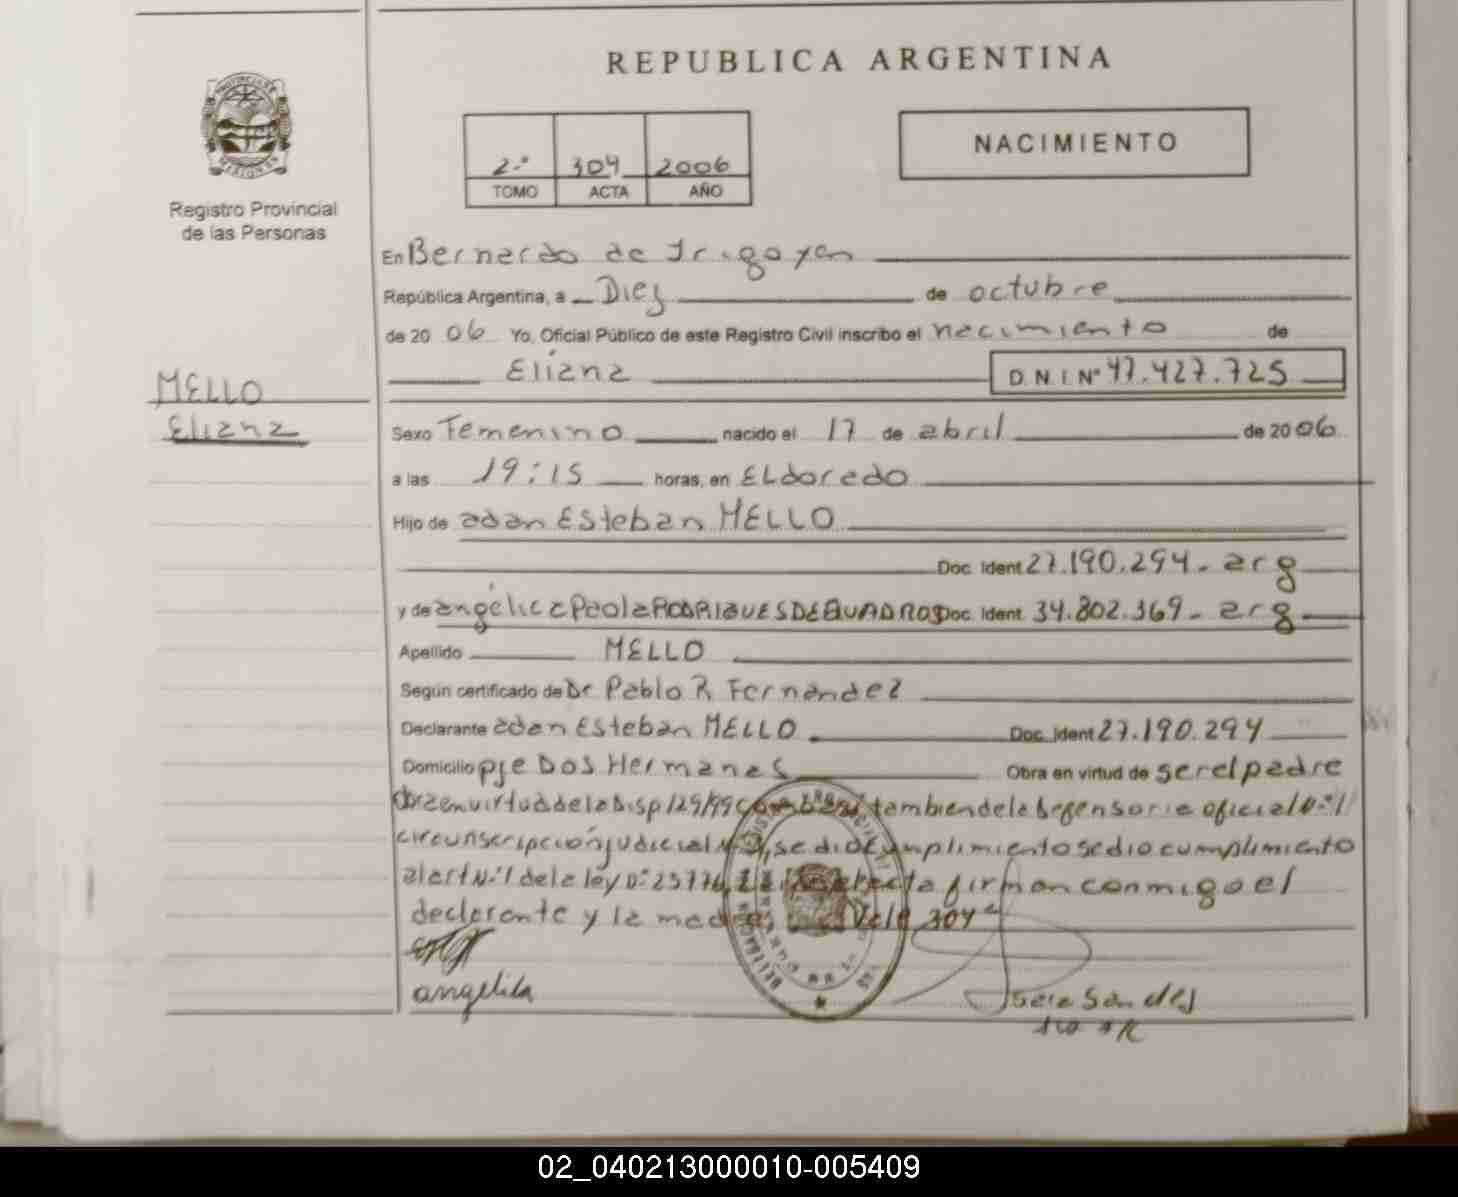 REPUBLICA ARGENTINA
PROVINCIA DE MISIONES
Registro Provincial
de las Personas
2.º 304 2006
TOMO ACTA AÑO
NACIMIENTO
En Bernardo de Irigoyen
República Argentina, a Diez de octubre
de 2006 Yo, Oficial Público de este Registro Civil inscribo el nacimiento de
Eliana D.N.I. Nº 47.427.725
MELLO
Eliana
Sexo Femenino nacido el 17 de abril de 2006
a las 19:15 horas, en Eldorado
Hijo de adan Esteban MELLO
Doc. Ident 27.190.294- arg
y de angélica Paola RODRIGUES DE QUADROS Doc. Ident. 34.802.369- arg
Apellido MELLO
Según certificado de Dr Pablo R Fernandez
Declarante adan Esteban MELLO Doc. Ident 27.190.294
Domicilio pje Dos Hermanas Obra en virtud de ser el padre
Obra en virtud de la Disp 129/99 tambien de la Defensoria oficial Nº 1
circunscripción judicial se dio cumplimiento se dio cumplimiento
al art Nº 1 de la ley Nº 25776, acta firman conmigo el
declarante y la madre Vale 304
angelica
02_040213000010-005409